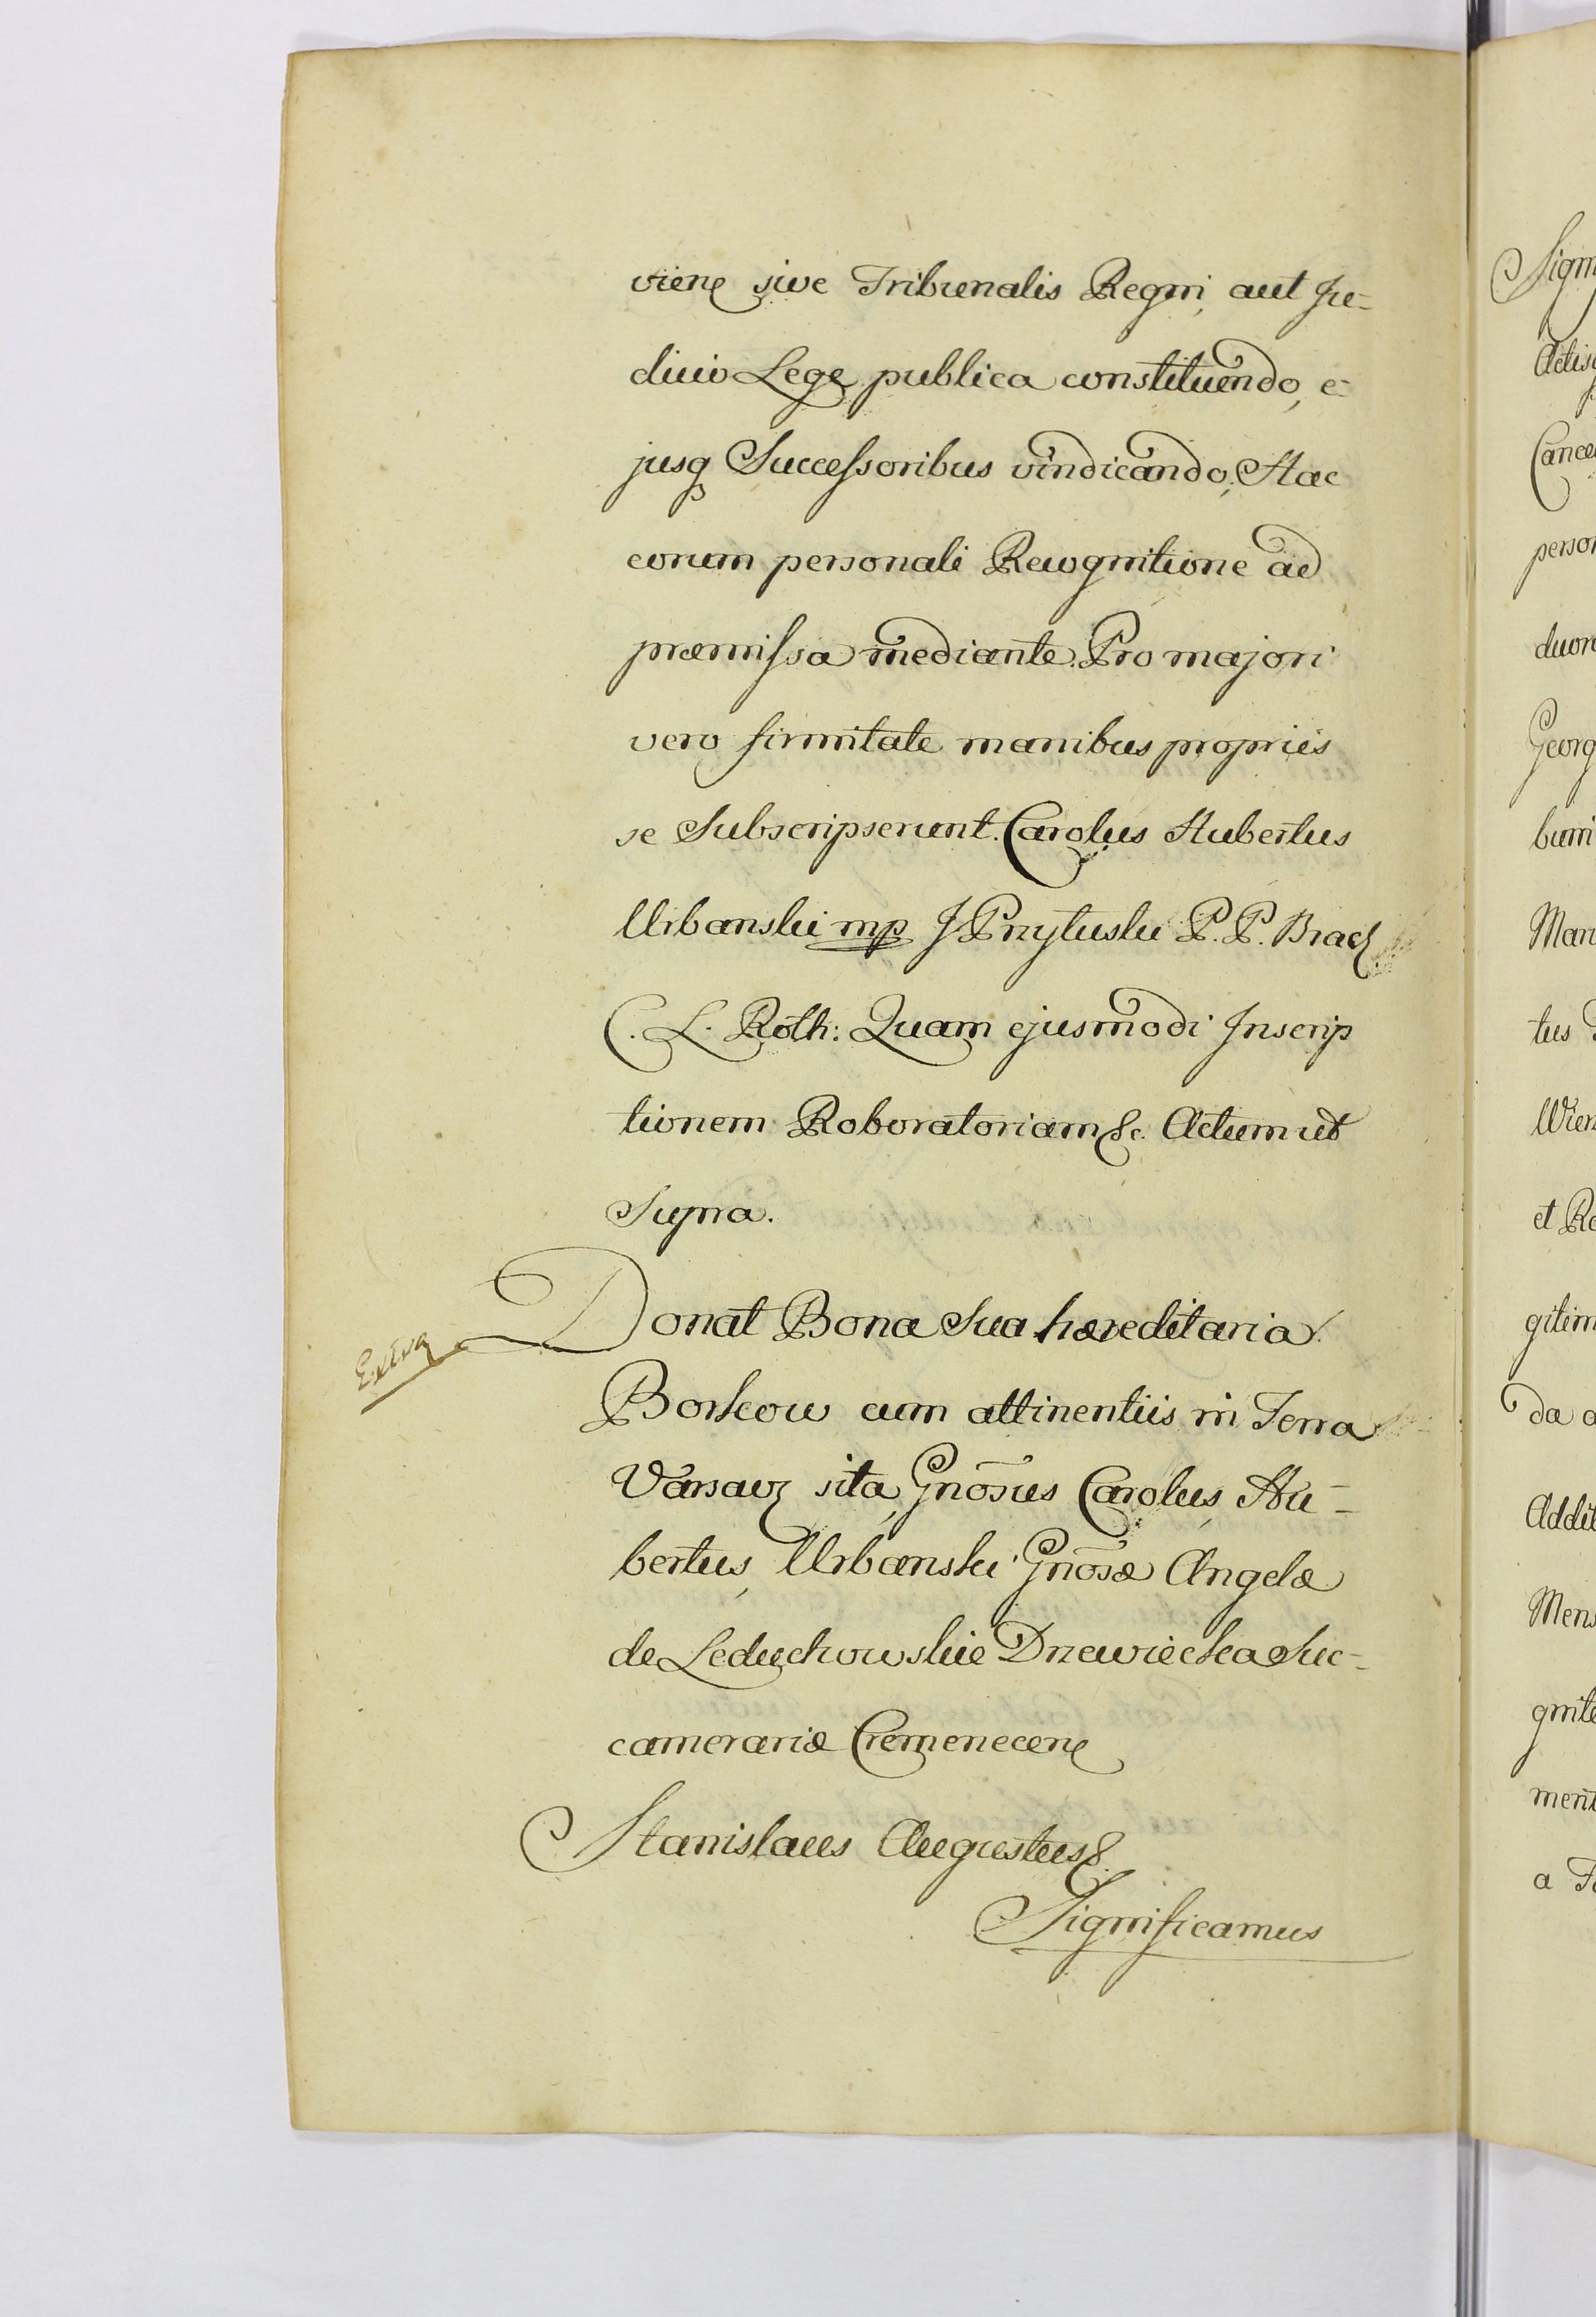 viens sive Tribunalis Regni, aut Ju-
dicio Lege publica constituendo, e-
jusq Successoribus vindicando, Hac
eorum personali Recognitione ad
præmissa mediante. Pro majori
vero firmitate manibus propriis
se Subscripserunt. Carolus Hubertus
Urbanski mp J Przyłuski P. P. Bracl
C. L. Roth: Quam ejusmodi Inscrip
tionem Roboratoriam &c. Actum ut
Supra.
Extra
Donat Bona Sua hæreditaria
Borkow cum attinentiis in Terra
Varsav sita, Gnōsus Carolus Hu-
bertus Urbanski Gnōsæ Angelæ
de Leduchowskie Drzewiecka Suc-
camerariæ Cremenecen
Stanislaus Augustus &.
Significamus
Sign
Actis
Cance
person
duor
Georg
bum
Man
tus
Wier
et Re
gitim
da a
Addit
Mens
gnite
ment
a